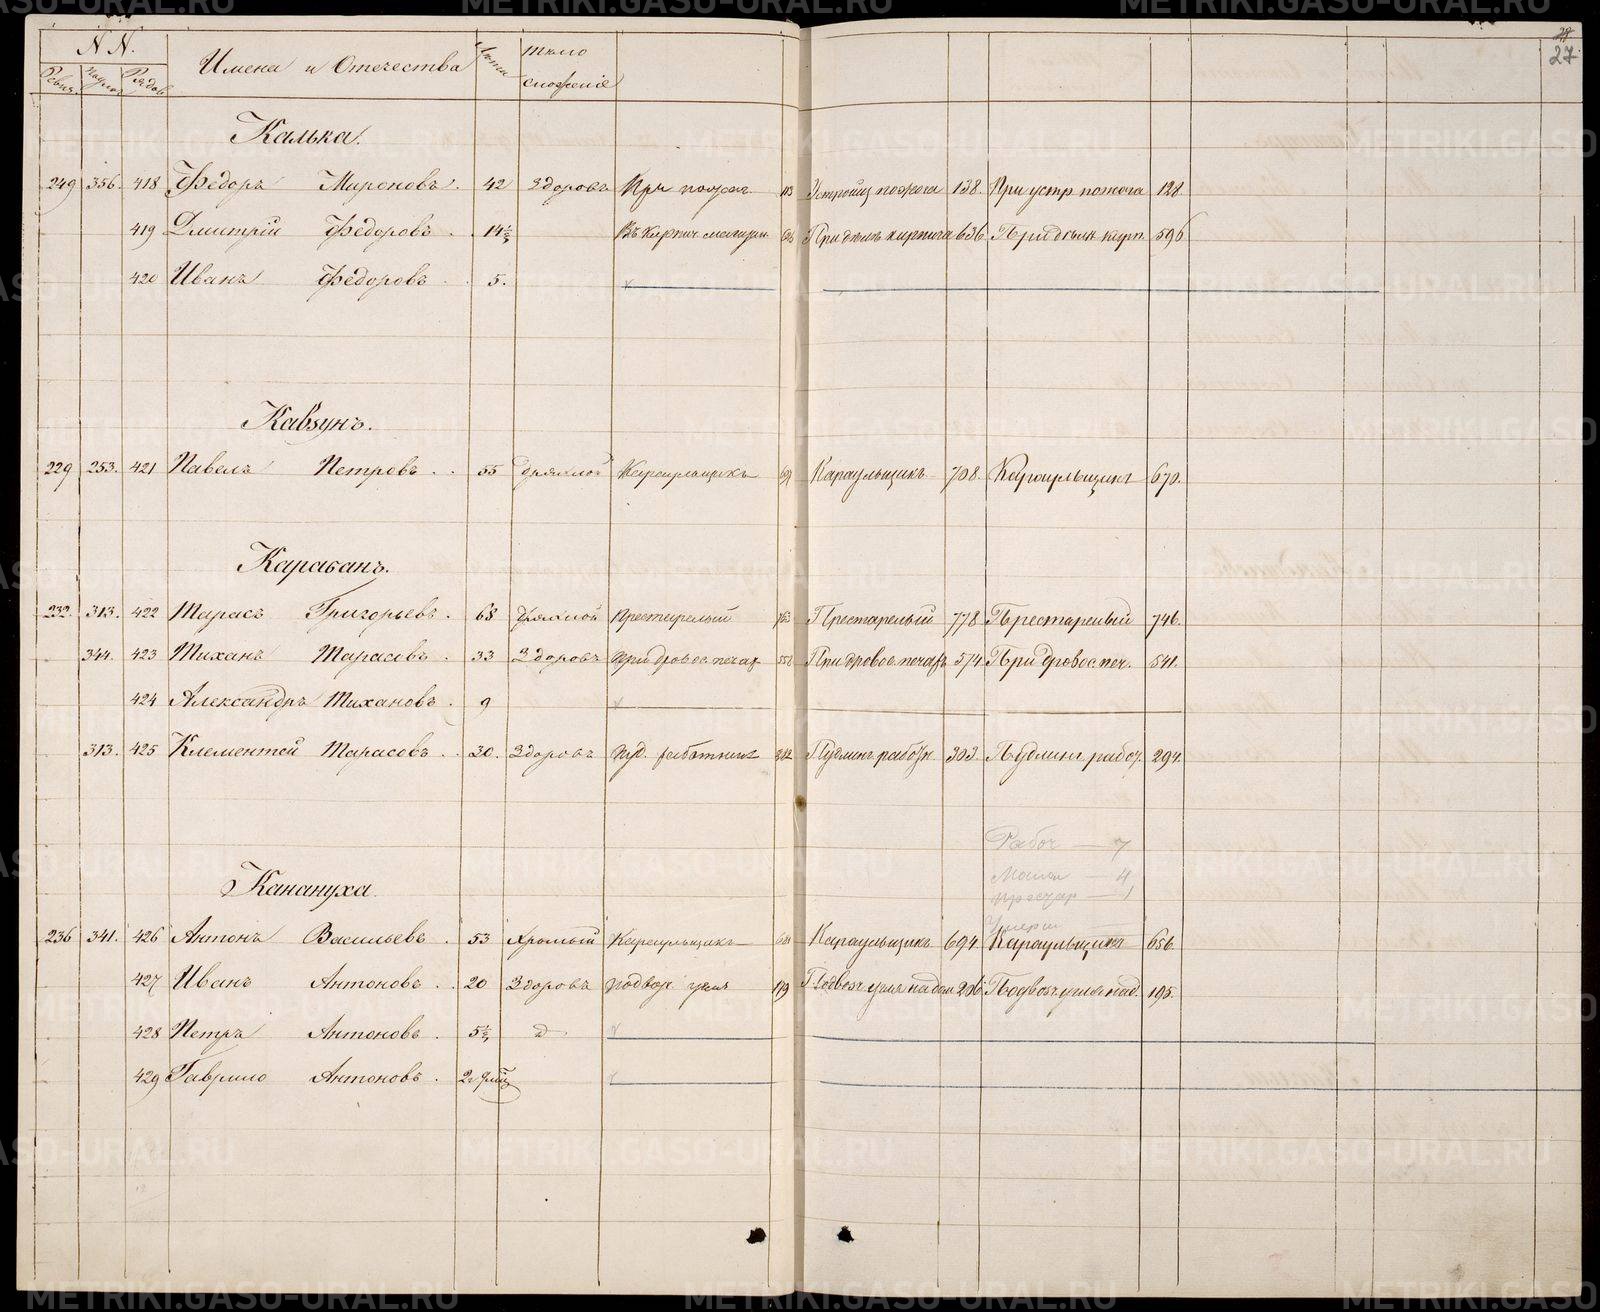 27
N N.
Ревиз. Рядов. Имена и Отечества Лета тело сложение
Калька.
249 356. 418 Ѳедоръ Мироновъ. 42 Здоровъ При пожог. 113 Устройщ пожога 138. При устр. пожога 128.
419 Дмитрій Ѳедоровъ. 14½ 636 При дѣлан кирп. 596
420 Иванъ Ѳедоровъ 5.
Кавзунъ.
229 253. 421 Павелъ Петровъ 55 дряхлой Караульщикъ Караульщикъ 708. Караульщикъ 670.
Караванъ.
232. 313. 422 Тарасъ Григорьевъ. 68 дряхлой Престарелый Престарелый 778 Престарелый 746.
344. 423 Тиханъ Тарасовъ. 33 Здоровъ При дровос. печах При дровос. печахъ 574 При дровос. печ. 541.
424 Александръ Тихановъ. 9
313. 425 Клементей Тарасовъ. 30. Здоровъ Пуд. работник Пудлинг. работн 303 Пудлинг. рабоч. 294.
Рабоч — 7
Малол — 4
Престар — 1
Умерш
Канануха
236 341. 426 Антонъ Васильевъ. 53 Хромый Караульщикъ Караульщикъ 694. Караульщикъ 656.
427 Иванъ Антоновъ. 20 Здоровъ подвоз. угля 189 Подвозч. угля на дом 206 Подвозч. угля на д. 195.
428 Петръ Антоновъ. 5½ д
429 Гаврило Антоновъ. 2г 9 мц